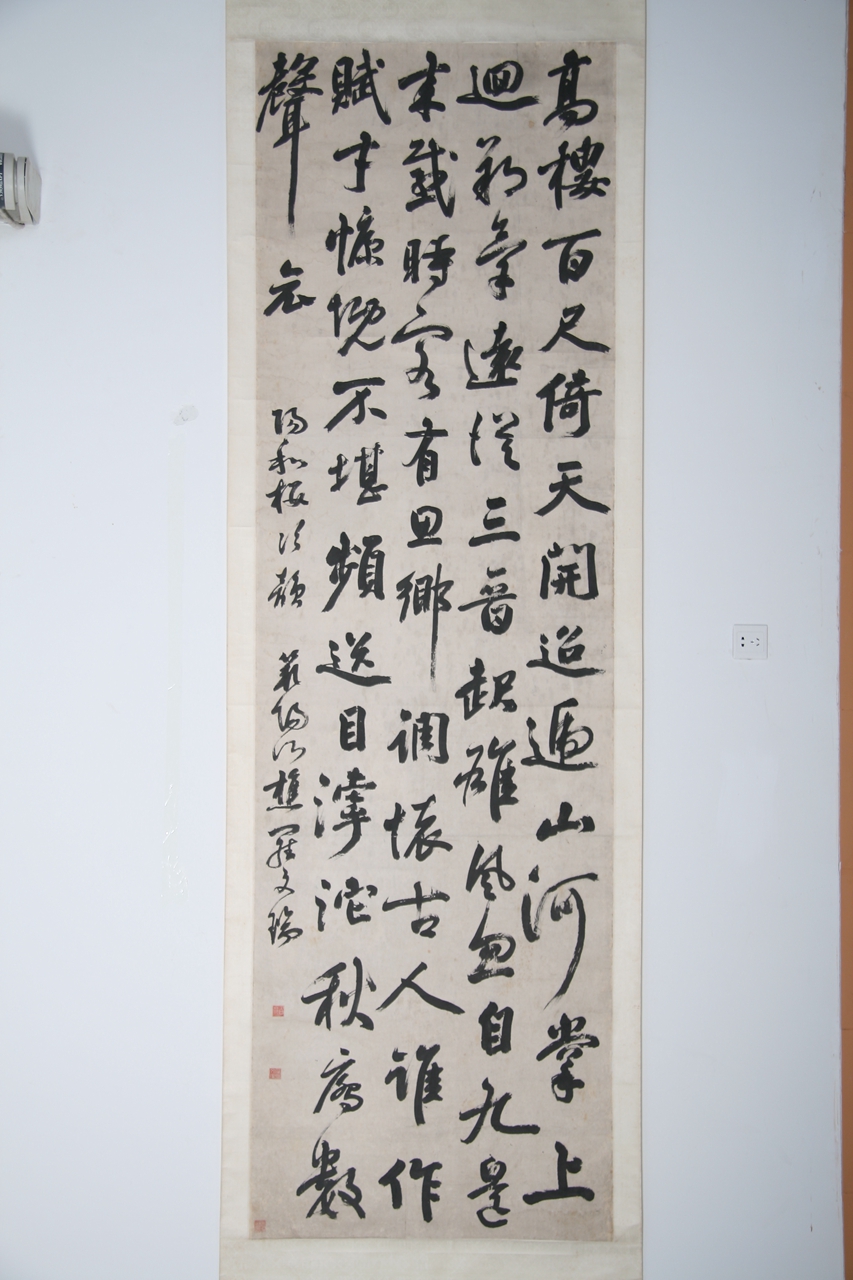 高樓百尺倚天開迢遞山河掌上
迴朔氣遠從三晉起雄風忽自九邊
來感時客有思鄉調懷古人誰作
賦才慷慨不堪頻送目滹沱秋鴈數
聲哀
陽和樓次韻 樵羅文瑞